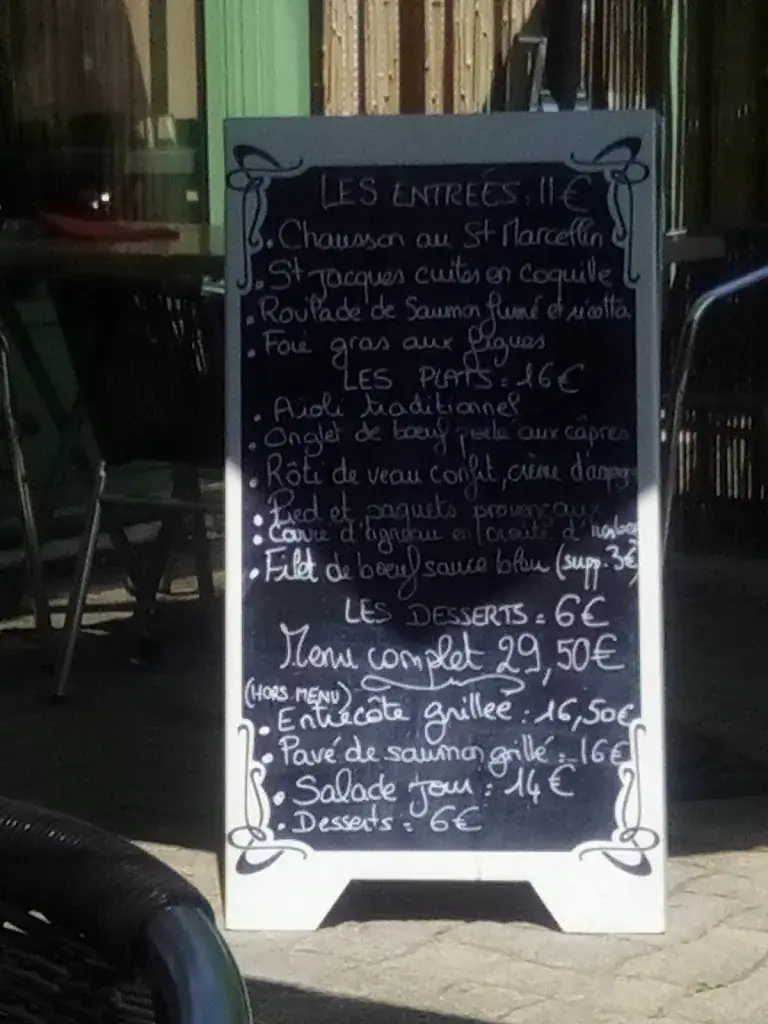 LES ENTREÉS : 11 €
. Chausson au St Marcellin
. St Jacques cuites en coquille
. Roulade de Saumon fumé et ricotta
. Foie gras aux figues
LES PLATS : 16 €
. Aïoli traditionnel
. Onglet de bœuf poele aux câpres
. Rôti de veau confit, crème
. Pied et paquets provençaux
. d'agneau en croute d'
. Filet de bœuf sauce bleu (supp. 3€
LES DESSERTS : 6€
Menu complet 29,50€
(HORS MENU)
. Entrecôte grillée : 16,50€
. Pavé de saumon grillé : 16€
. Salade jour : 14 €
. Desserts : 6€